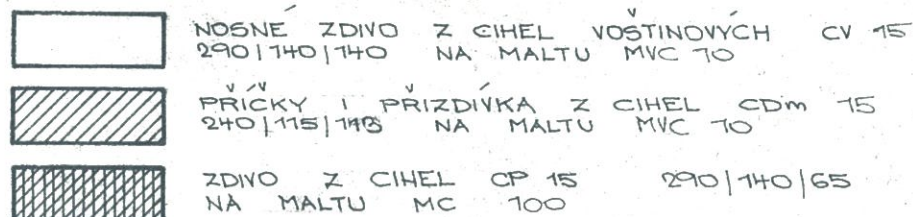 NOSNÉ ZDIVO Z CIHEL VOŠTINOVÝCH CV 15
290/140/140 NA MALTU MVC 10
PŘÍČKY I PŘIZDÍVKA Z CIHEL CDm 15
240/115/113 NA MALTU MVC 10
ZDIVO Z CIHEL CP 15 290/140/65
NA MALTU MC 100